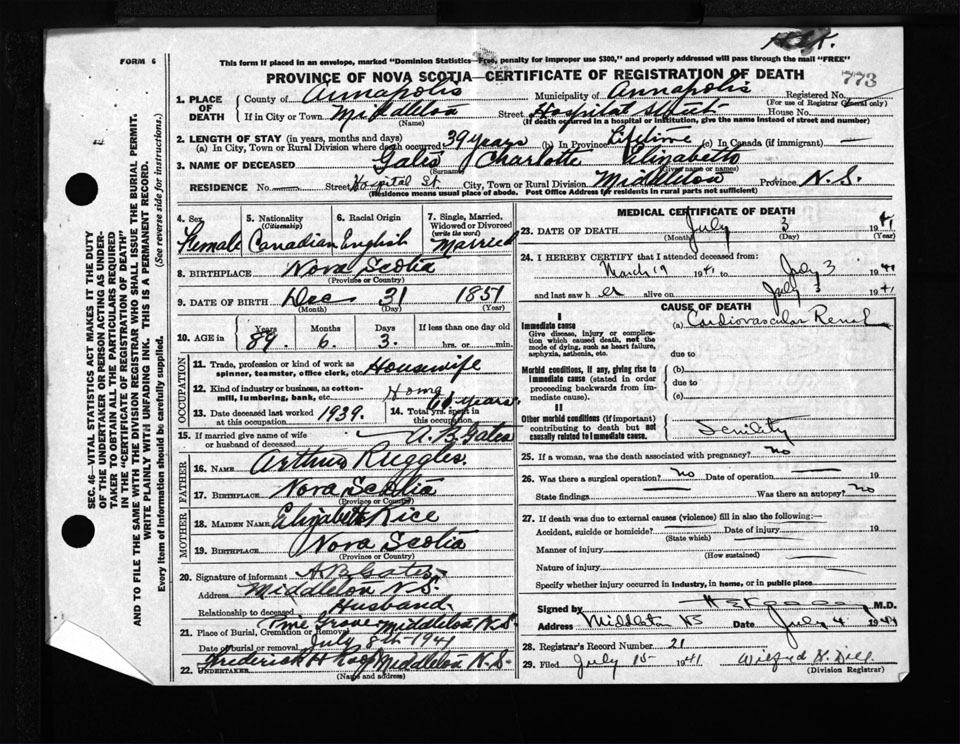 H.E.K.
FORM 6
This form if placed in an envelope, marked "Dominion Statistics—Free, penalty for improper use $300," and properly addressed will pass through the mail "FREE"
PROVINCE OF NOVA SCOTIA—CERTIFICATE OF REGISTRATION OF DEATH
773
1. PLACE OF DEATH
County of Annapolis Municipality of Annapolis Registered No.
(For use of Registrar General only)
If in City or Town Middleton Street Hospital Street House No.
(Name) (If death occurred in a hospital or institution, give the name instead of street and number)
2. LENGTH OF STAY (in years, months and days)
(a) In City, Town or Rural Division where death occurred 39 years (b) In Province Lifetime (c) In Canada (if immigrant) —
3. NAME OF DECEASED Gates Charlotte Elizabeth
(Surname) (Given name or names)
RESIDENCE No. Street Hospital St. City, Town or Rural Division Middleton Province N.S.
(Residence means usual place of abode. Post Office Address for residents in rural parts not sufficient)
4. Sex Female
5. Nationality (Citizenship) Canadian
6. Racial Origin English
7. Single, Married, Widowed or Divorced (write the word) Married
8. BIRTHPLACE Nova Scotia
(Province or Country)
9. DATE OF BIRTH Dec 31 1851
(Month) (Day) (Year)
10. AGE in Years 89. Months 6. Days 3. If less than one day old
hrs. or min.
OCCUPATION
11. Trade, profession or kind of work as spinner, teamster, office clerk, etc. Housewife
12. Kind of industry or business, as cotton-mill, lumbering, bank, etc. Home
13. Date deceased last worked at this occupation 1939.
14. Total yrs. spent in this occupation years
15. If married give name of wife or husband of deceased A. B. Gates
FATHER
16. NAME Arthur Ruggles.
17. BIRTHPLACE Nova Scotia
(Province or Country)
MOTHER
18. MAIDEN NAME Elizabeth Rice
19. BIRTHPLACE Nova Scotia
(Province or Country)
20. Signature of informant A B Gates
Address Middleton N.S.
Relationship to deceased Husband
21. Place of Burial, Cremation or Removal Pine Grove Middleton N.S
Date of burial or removal July 5th 1941
22. UNDERTAKER Frederick H Middleton N.S.
(Name and address)
MEDICAL CERTIFICATE OF DEATH
23. DATE OF DEATH July 3 1941
(Month) (Day) (Year)
24. I HEREBY CERTIFY that I attended deceased from:
March 19 1941 to July 3 1941
and last saw her alive on July 3 1941
CAUSE OF DEATH
I
Immediate cause (a) Cardiovascular Renal
Give disease, injury or complication which caused death, not the mode of dying, such as heart failure, asphyxia, asthenia, etc.
due to
Morbid conditions, if any, giving rise to immediate cause (stated in order proceeding backwards from immediate cause)
(b)
due to
(c)
II
Other morbid conditions (if important) contributing to death but not causally related to immediate cause. Senility
25. If a woman, was the death associated with pregnancy? no
26. Was there a surgical operation? no Date of operation — 19
State findings — Was there an autopsy? no
27. If death was due to external causes (violence) fill in also the following:—
Accident, suicide or homicide? Date of injury 19
(State which)
Manner of injury
(How sustained)
Nature of injury
Specify whether injury occurred in industry, in home, or in public place
Signed by M.D.
Address Middleton NS Date July 4 1941
28. Registrar's Record Number 21
29. Filed July 15 1941
(Division Registrar)
SEC. 46—VITAL STATISTICS ACT MAKES IT THE DUTY
OF THE UNDERTAKER OR PERSON ACTING AS UNDER-
TAKER TO OBTAIN ALL THE PARTICULARS REQUIRED
IN THE "CERTIFICATE OF REGISTRATION OF DEATH"
AND TO FILE THE SAME WITH THE DIVISION REGISTRAR WHO SHALL ISSUE THE BURIAL PERMIT.
WRITE PLAINLY WITH UNFADING INK. THIS IS A PERMANENT RECORD.
Every item of Information should be carefully supplied. (See reverse side for instructions.)